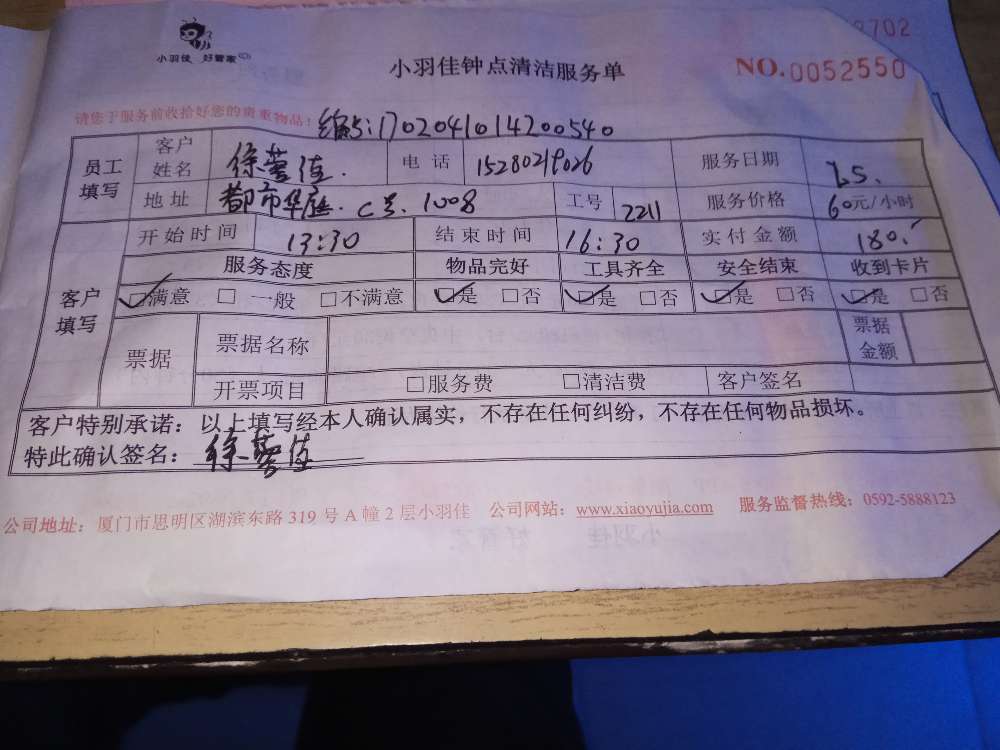 小羽佳 好管家
小羽佳钟点清洁服务单
NO.0052550
请您于服务前收拾好您的贵重物品!
编号:1702041014200540
员工填写 客户姓名 徐蓉佳. 电话 15280219026 服务日期
地址 都市华庭.C号.1008 工号 2211 服务价格 60元/小时
开始时间 13:30 结束时间 16:30 实付金额 180.-
客户填写 服务态度 物品完好 工具齐全 安全结束 收到卡片
☑满意 □一般 □不满意 ☑是 □否 ☑是 □否 ☑是 □否 ☑是 □否
票据 票据名称 票据金额
开票项目 □服务费 □清洁费 客户签名
客户特别承诺：以上填写经本人确认属实，不存在任何纠纷，不存在任何物品损坏。
特此确认签名：徐蓉佳
公司地址：厦门市思明区湖滨东路 319 号 A 幢 2 层小羽佳 公司网站：www.xiaoyujia.com 服务监督热线：0592-5888123